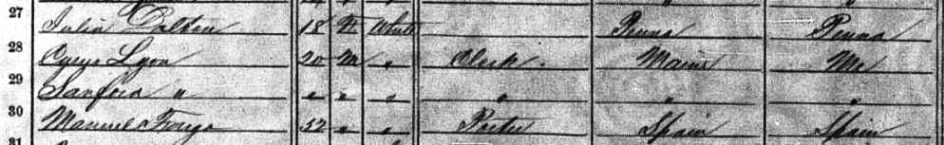 27 Julia Dalton 18 White Penna Penna
28 Cyrus Lyon 20 M " Clerk Maine Me
29 Sanford " " " " " " "
30 Manuel 52 " " Porter Spain Spain
31